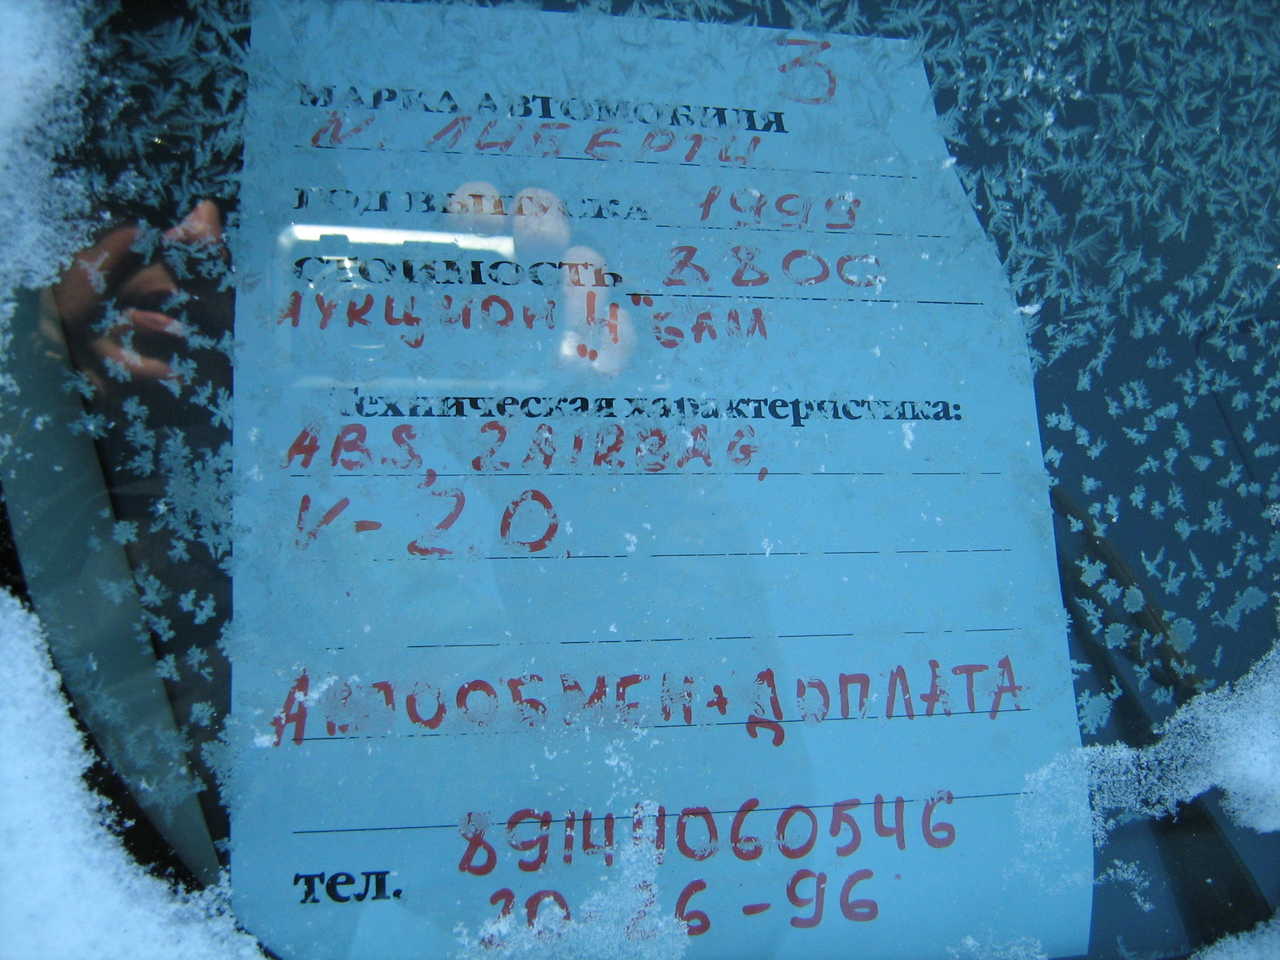 3
МАРКА АВТОМОБИЛЯ
N. ЛИБЕРТИ
ГОД ВЫПУСКА 1999
СТОИМОСТЬ 3800
АУКЦИОН "4" БАЛ
Техническая характеристика:
ABS, 2AIRBAG,
V-2.0
АВТООБМЕН+ДОПЛАТА
89144060546
тел. -96